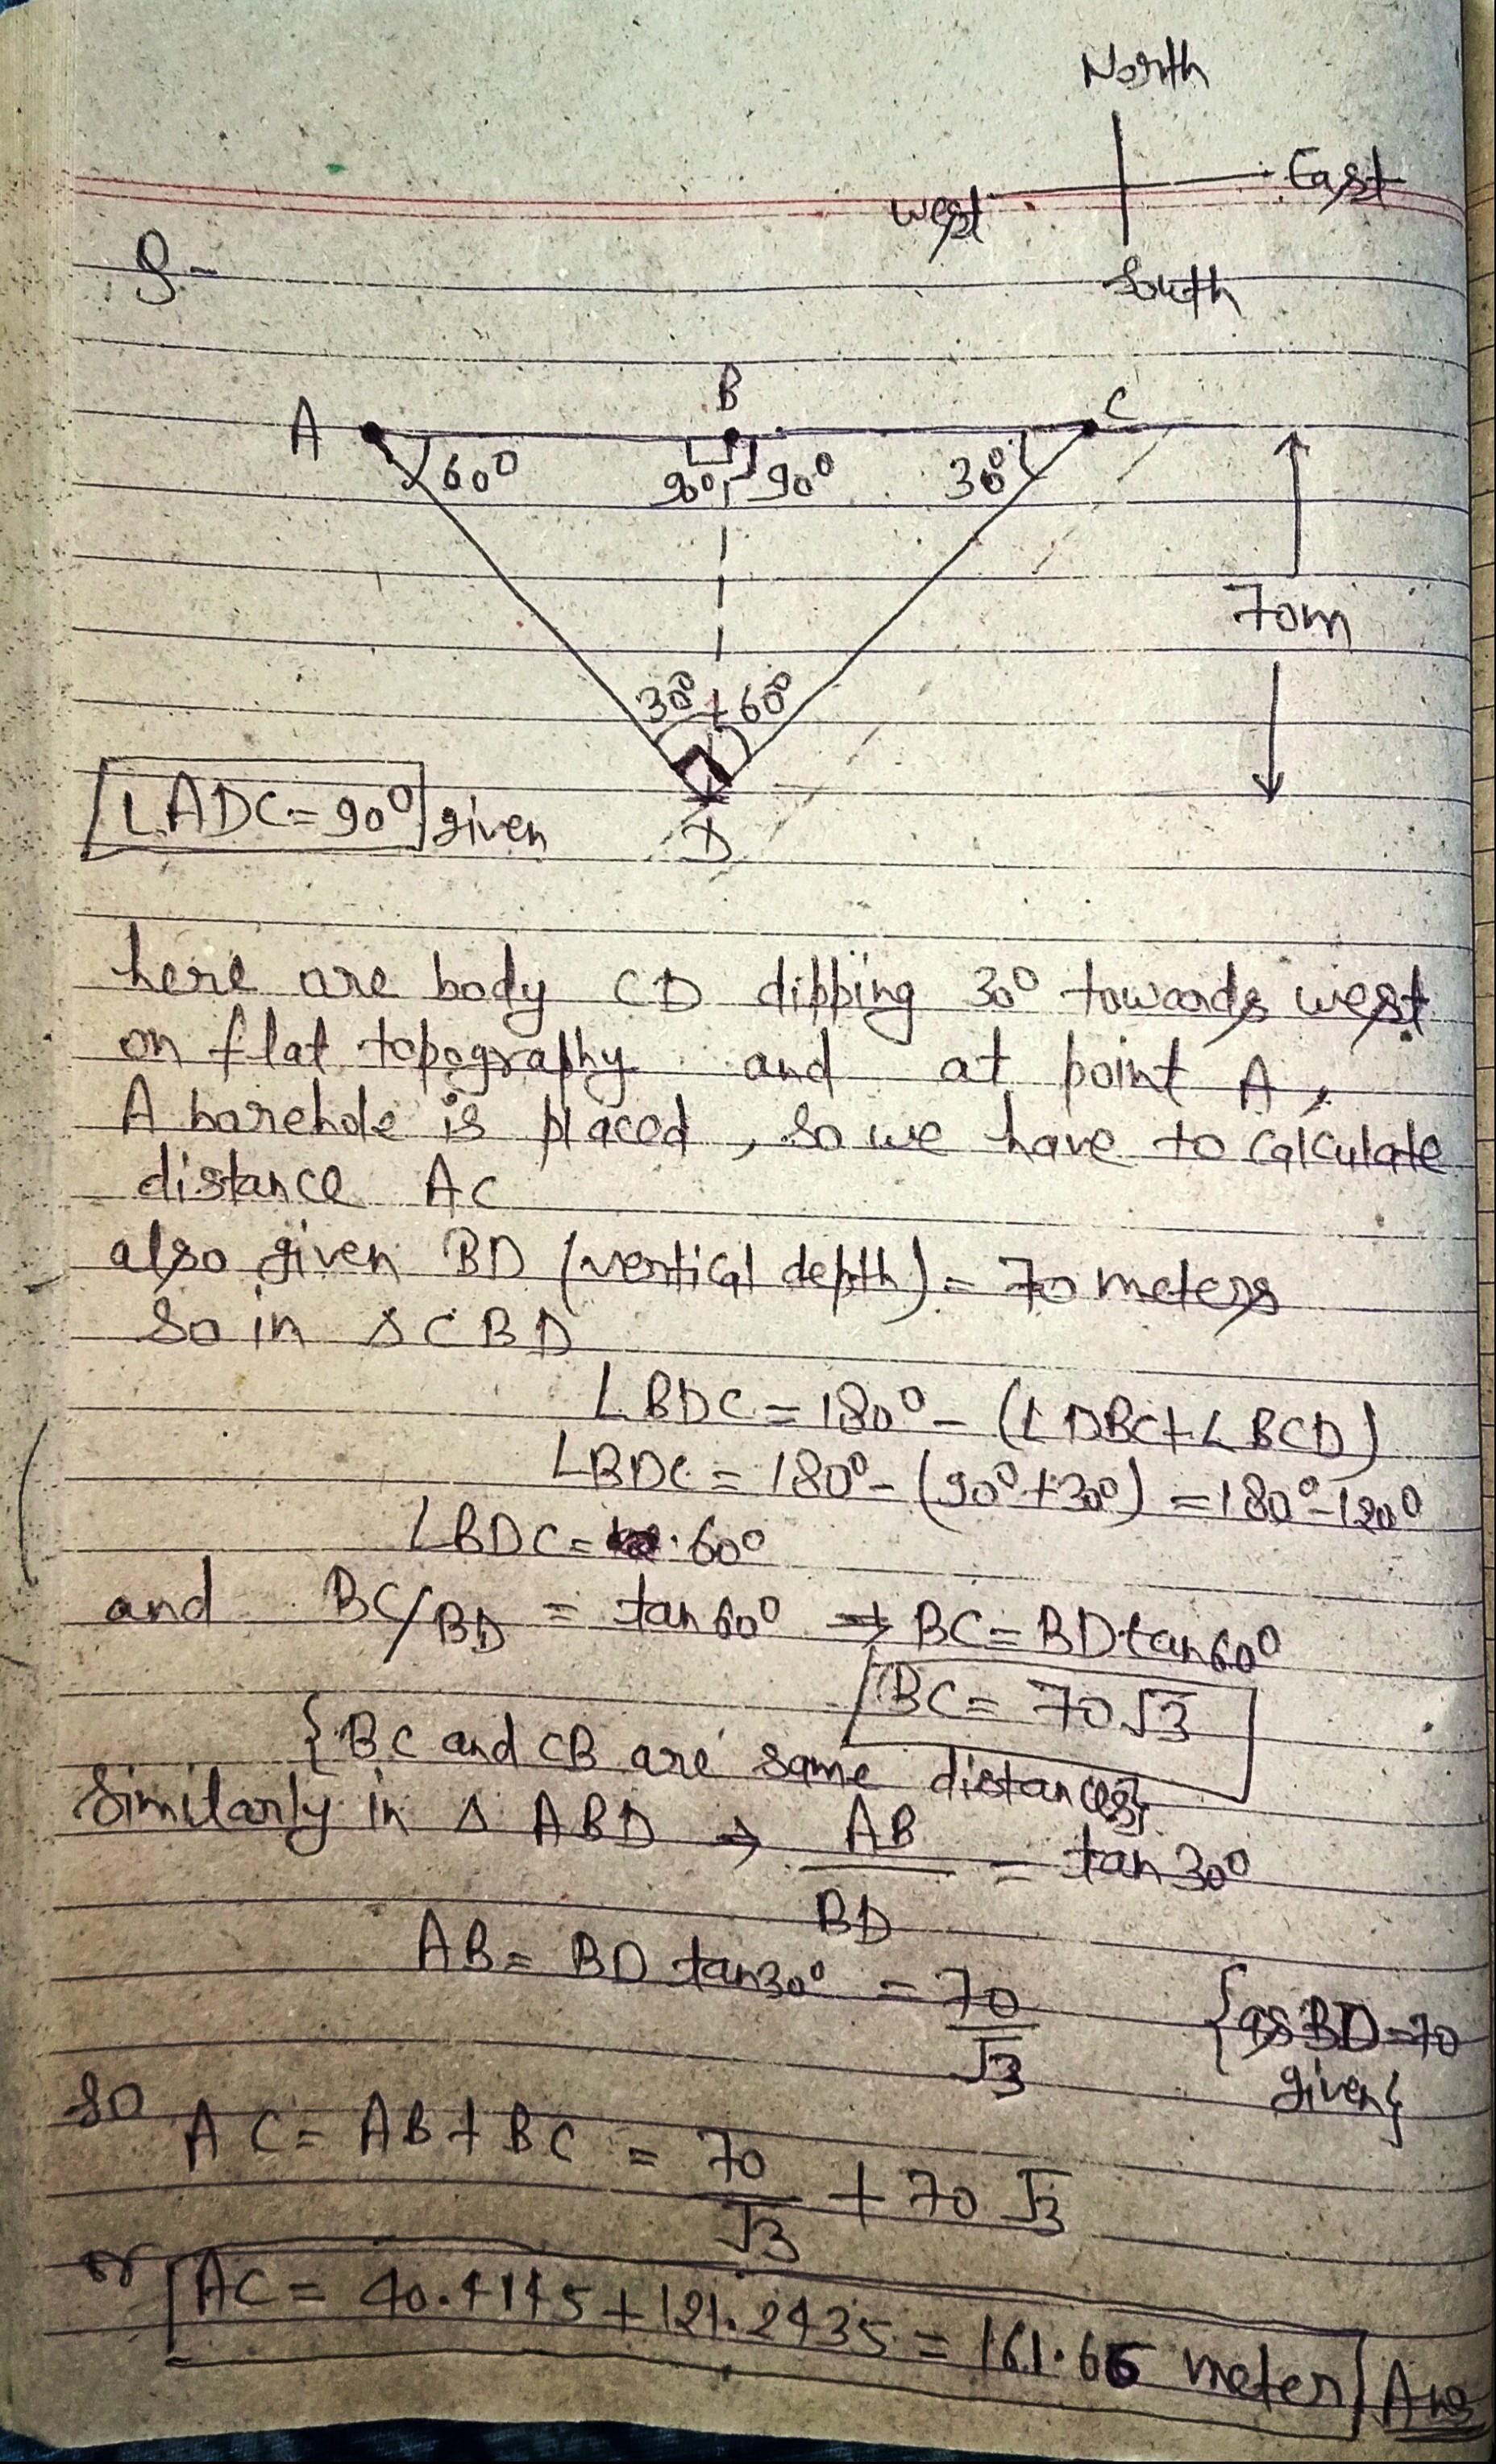 North
West East
South
S-
A B C
60° 90° 90° 30°
70m
30° + 60°
∠ADC=90° given
D
here are body CD dipping 30° towards west
on flat topography and at point A,
A borehole is placed, so we have to calculate
distance AC
also given BD (vertical depth) = 70 meters
So in Δ CBD
∠BDC = 180° - (∠DBC+∠BCD)
∠BDC = 180° - (90°+30°) = 180°-120°
∠BDC = 60°
and BC/BD = tan60° ⇒ BC = BD tan60°
BC = 70√3
{BC and CB are same distances}
Similarly in Δ ABD → AB/BD = tan30°
AB = BD tan30° = 70/√3 {as BD=70
given}
so AC = AB + BC = 70/√3 + 70√3
or AC = 40.4145+121.2435 = 161.66 meter Ans